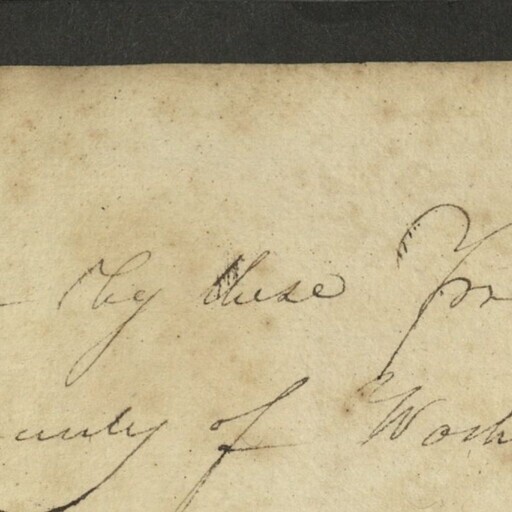 by these Pre
ounty of Wash